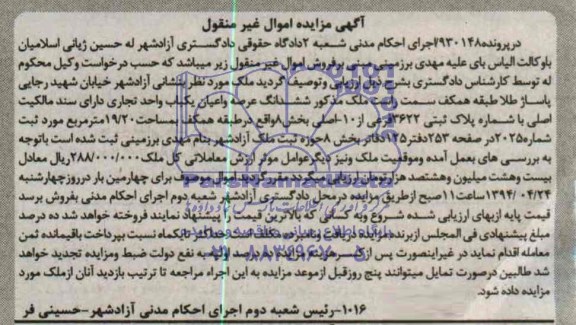 آگهی مزایده اموال غیر منقول
در پرونده ۹۳۰۱۴۸/اجرای احکام مدنی شعبه ۲دادگاه حقوقی دادگستری آزادشهر له حسین ژیانی اسلامیان
باوکالت الیاس بای علیه مهدی برزمینی مبنی برفروش اموال غیر منقول زیر میباشد که حسب درخواست وکیل محکوم
له توسط کارشناس دادگستری بشرح ذیل ارزیابی وتوصیف گردید ملک مورد نظر بنشانی آزادشهر خیابان شهید رجایی
پاساژ طلا طبقه همکف سمت ملک مذکور ششدانگ عرصه واعیان یکباب واحد تجاری دارای سند مالکیت
اصلی با شماره پلاک ثبتی ۳۶۲۲فرعی از۱۰-اصلی بخش۸واقع درطبقه همکف بمساحت۱۹/۲۰مترمربع مورد ثبت
شماره۲۰۲۵در صفحه ۲۵۳دفتر۱۲۵دفاتر بخش ۸حوزه ثبت ملک آزادشهر بنام مهدی برزمینی ثبت شده است باتوجه
به بررسی های بعمل آمده وموقعیت ملک ونیز دیگرعوامل موثر ارزش معاملاتی کل ملک۲۸۸/۰۰۰/۰۰۰ریال معادل
بیست وهشت میلیون وهشتصد هزارتومان ارزیابی میگردد مقرر گردید اموال موصوف برای چهارمین بار درروزچهارشنبه
۱۳۹۴/۰۴/۲۴ساعت۱۱صبح ازطریق مزایده درمحل دادگستری آزادشهر دوم اجرای احکام مدنی بفروش برسد
قیمت پایه ازبهای ارزیابی شده شروع وبه کسانی که بالاترین قیمت را پیشنهاد نمایند فروخته خواهد شد ده درصد
مبلغ پیشنهادی فی المجلس ازبرنده مزایده دریافت وبرنده مکلف است حداکثر تایکماه نسبت بپرداخت باقیمانده ثمن
معامله اقدام نماید در غیراینصورت پس از کسر هزینه مزایده ده درصد اولیه به نفع دولت ضبط ومزایده تجدید خواهد
شد طالبین درصورت تمایل میتوانند پنج روزقبل ازموعد مزایده به این اجراء مراجعه تا ترتیب بازدید آنان ازملک مورد
مزایده داده شود.
۱۰۱۶-رئیس شعبه دوم اجرای احکام مدنی آزادشهر-حسینی فر
ParsNamadData